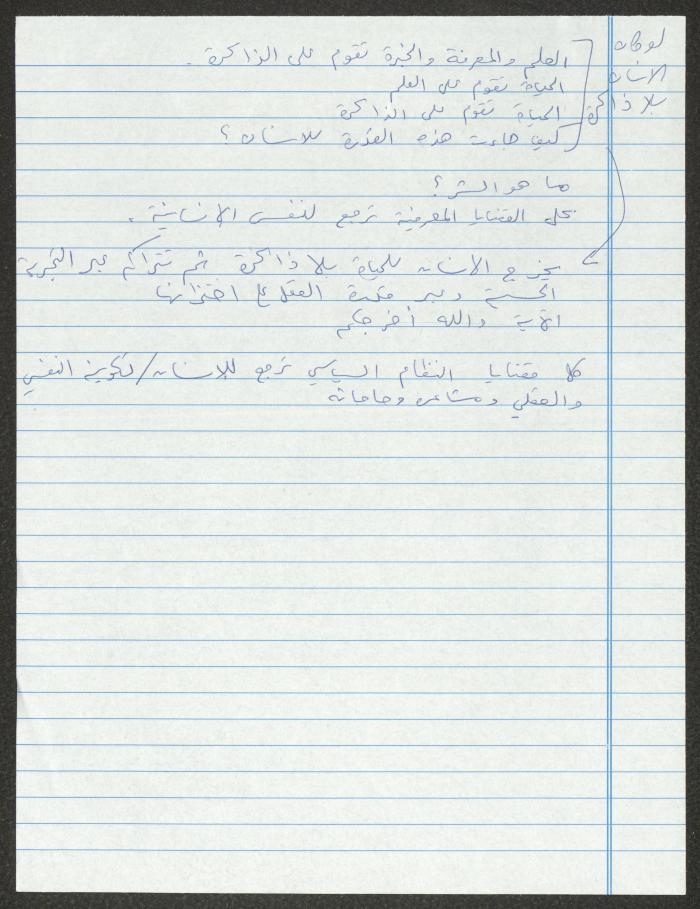 لو كان
الانسان
بلا ذاكرة
العلم والمعرفة والخبرة تقوم على الذاكرة .
الحياة تقوم على العلم
الحياة تقوم على الذاكرة
كيف جاءت هذه القدرة للانسان ؟
ما هو الشر ؟
كل القضايا المعرفية ترجع للنفس الإنسانية .
يخرج الانسان للحياة بلا ذاكرة ثم تتراكم عبر التجربة
الحسية وعبر قدرة العقل على اختزانها
الآية والله أخرجكم
كل قضايا النظام السياسي ترجع للإنسان / لتكوينه النفسي
والعقلي ومشاعره وحاجاته